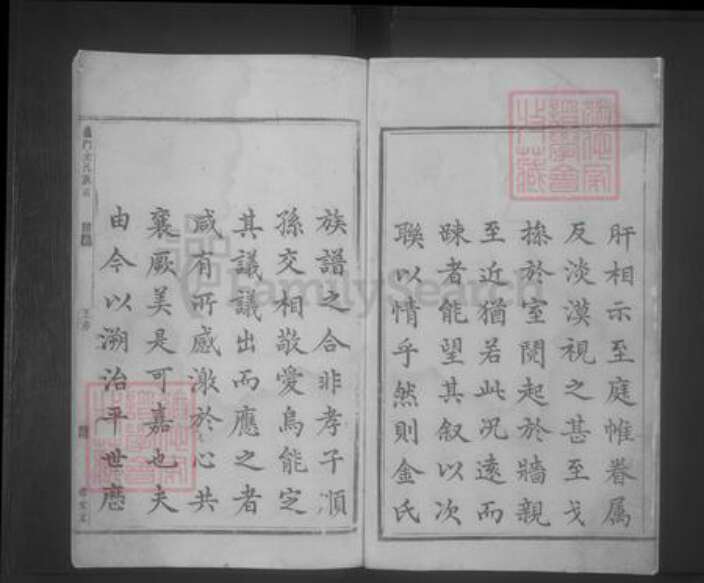 肝相示至庭帷眷属
反淡漠視之甚至戈
操於室鬩起於牆親
至近猶若此况遠而
踈者能望其叙以次
聯以情乎然則金氏
族譜之合非孝子順
孫交相敬愛烏能定
其議議出而應之者
咸有所感激於心共
襄厥美是可嘉也夫
由今以溯治平世歷
FamilySearch